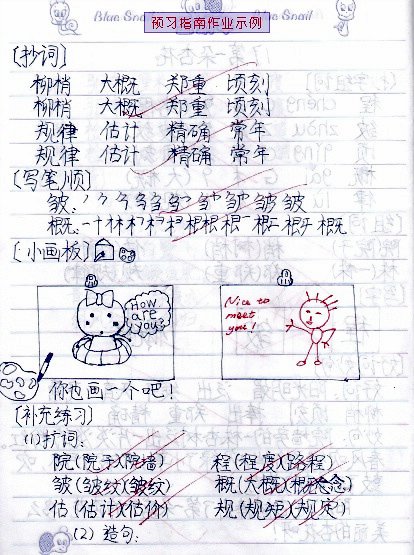 预习指南作业示例
Blue Snail
[抄词]
柳梢 大概 郑重 顷刻
柳梢 大概 郑重 顷刻
规律 估计 精确 常年
规律 估计 精确 常年
[写笔顺]
皱:
概:
[小画板]
How are you?
Nice to meet you!
你也画一个吧!
[补充练习]
(1)扩词:
院(院子)(院墙) 程(程度)(路程)
皱(皱纹)(皱纹) 概(大概)(概念)
估(估计)(估价) 规(规矩)(规定)
(2)造句: